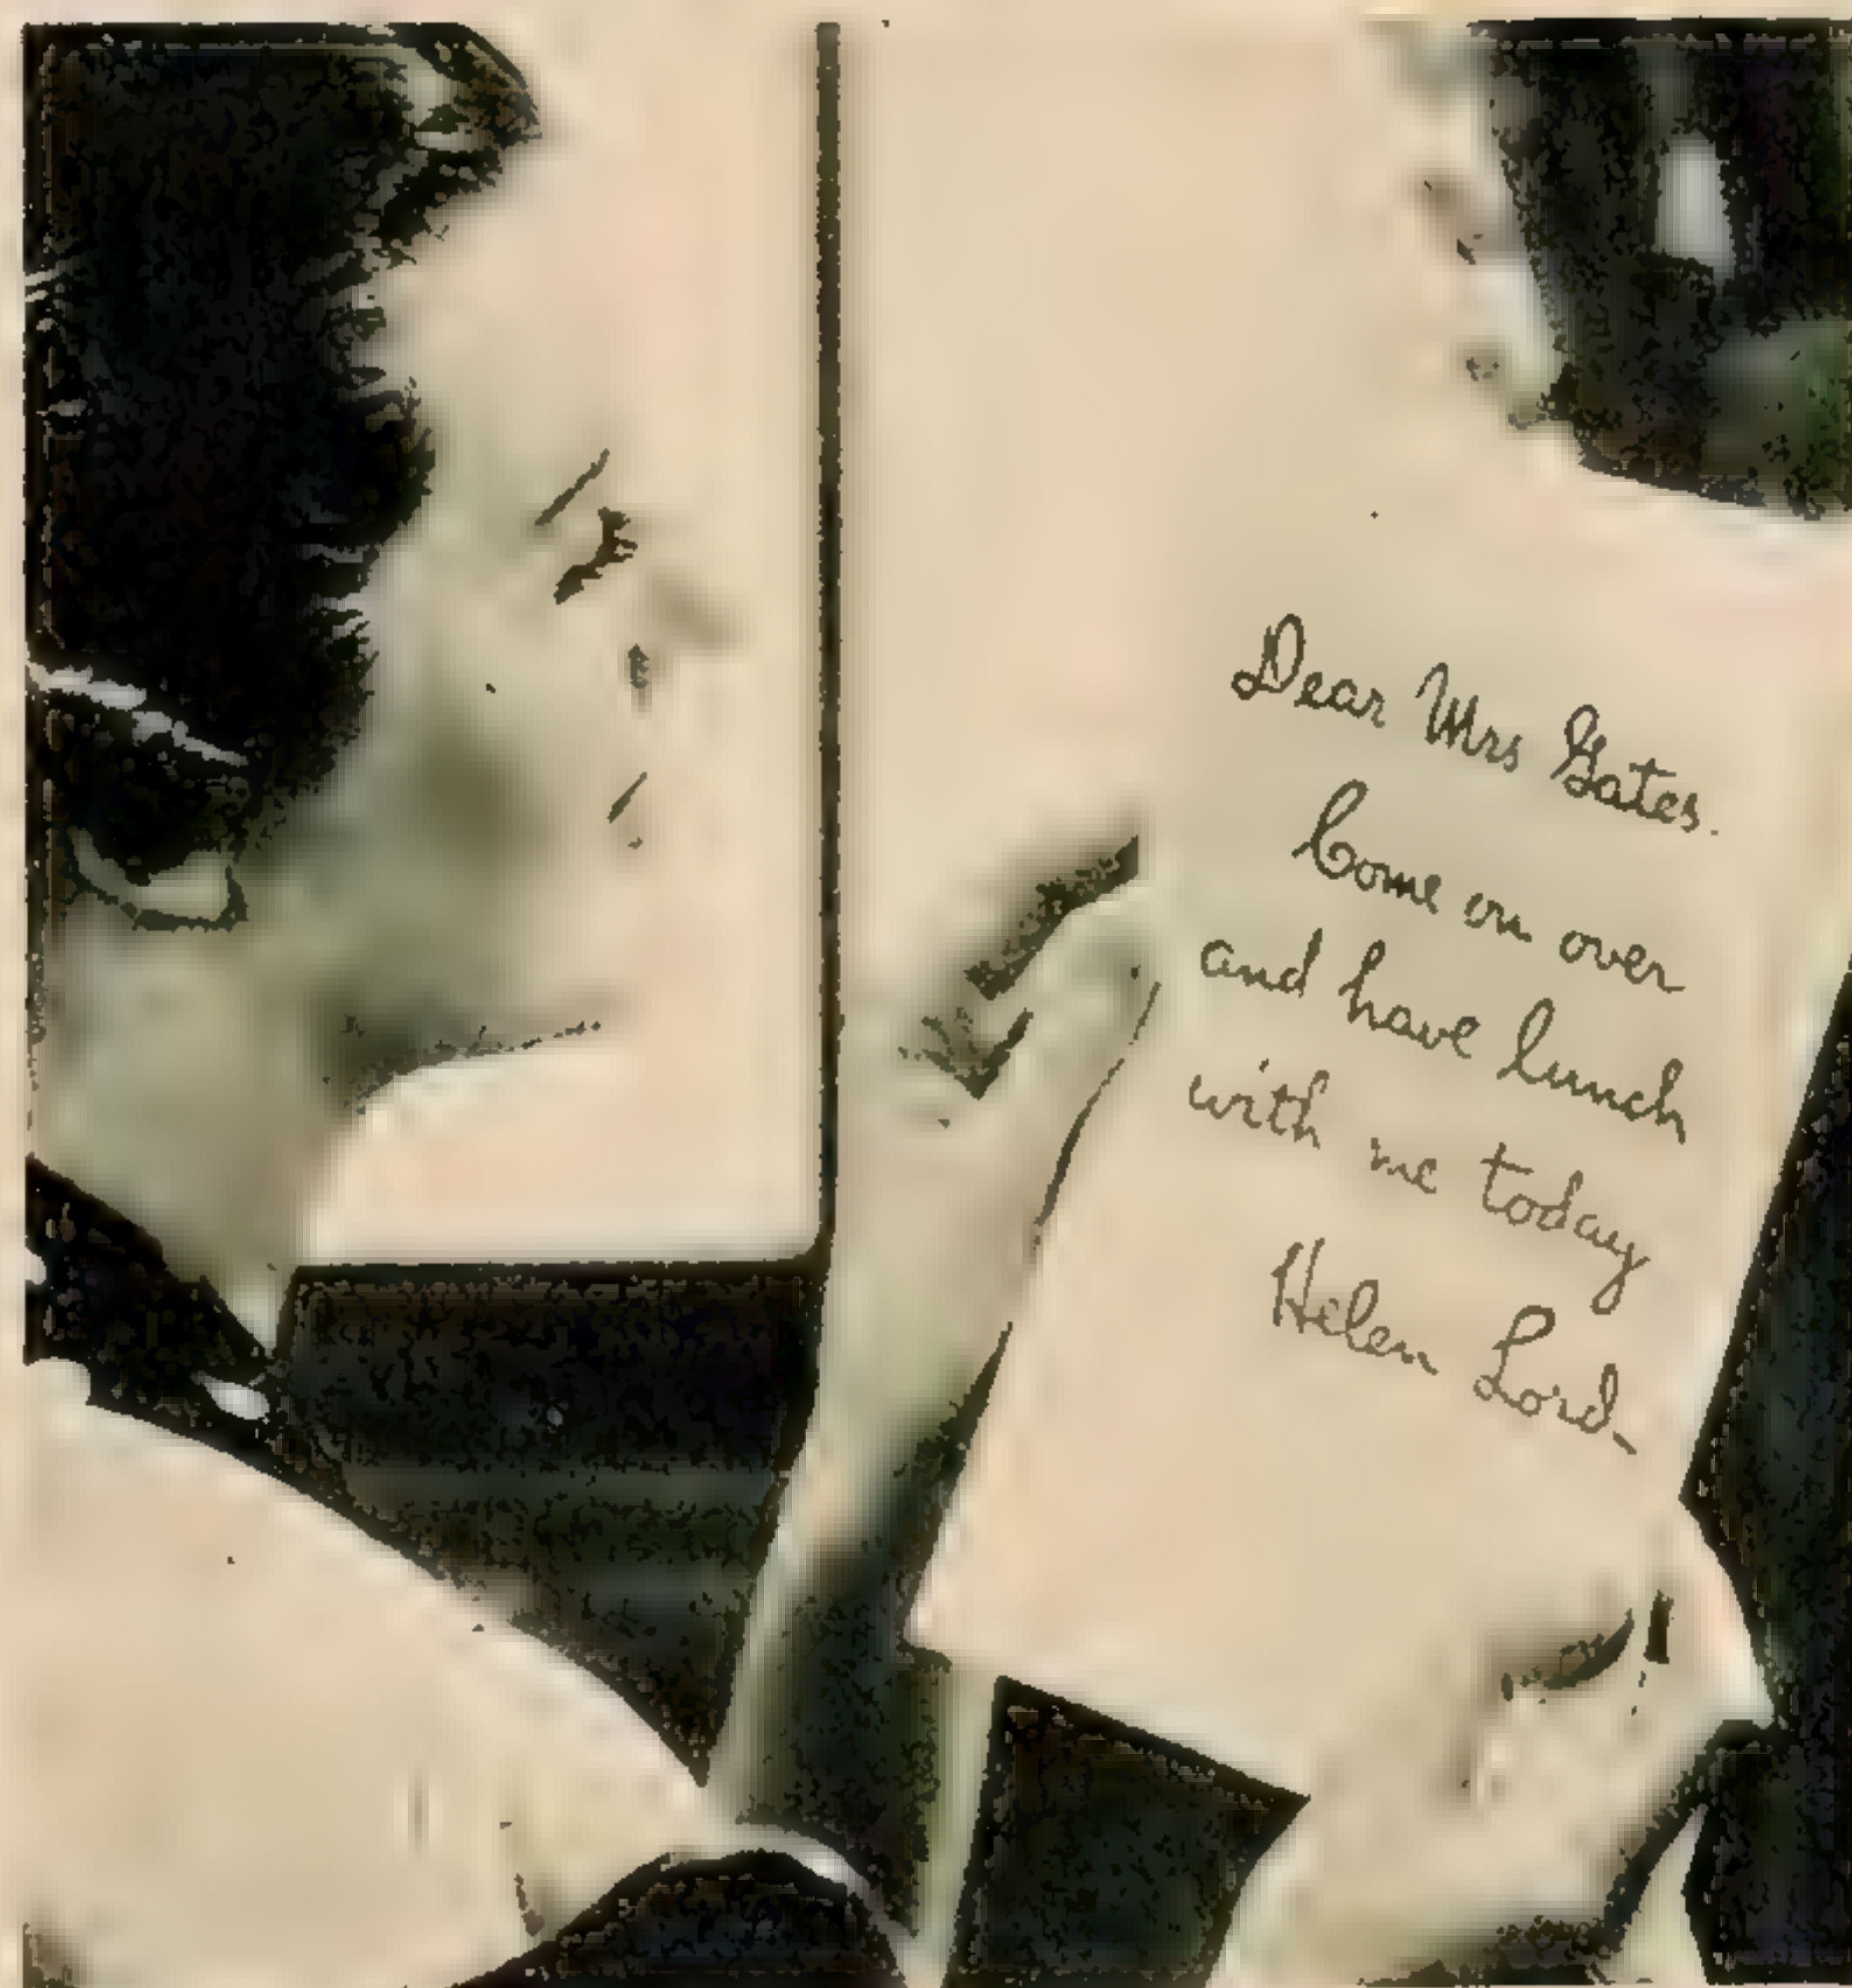 Dear Mrs Gates.
Come on over
and have lunch
with me today
Helen Lord